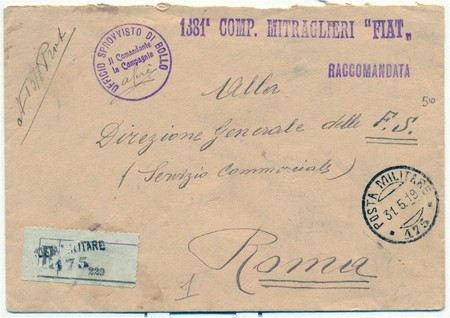 1381ª COMP. MITRAGLIERI "FIAT„
RACCOMANDATA
UFFICIO SPROVVISTO DI BOLLO
Il Comandante
la Compagnia
Alla
Direzione Generale delle F.S.
(Servizio Commerciale)
Roma
POSTA MILITARE
31.5.19
* 175 *
POSTA MILITARE
175
229
1